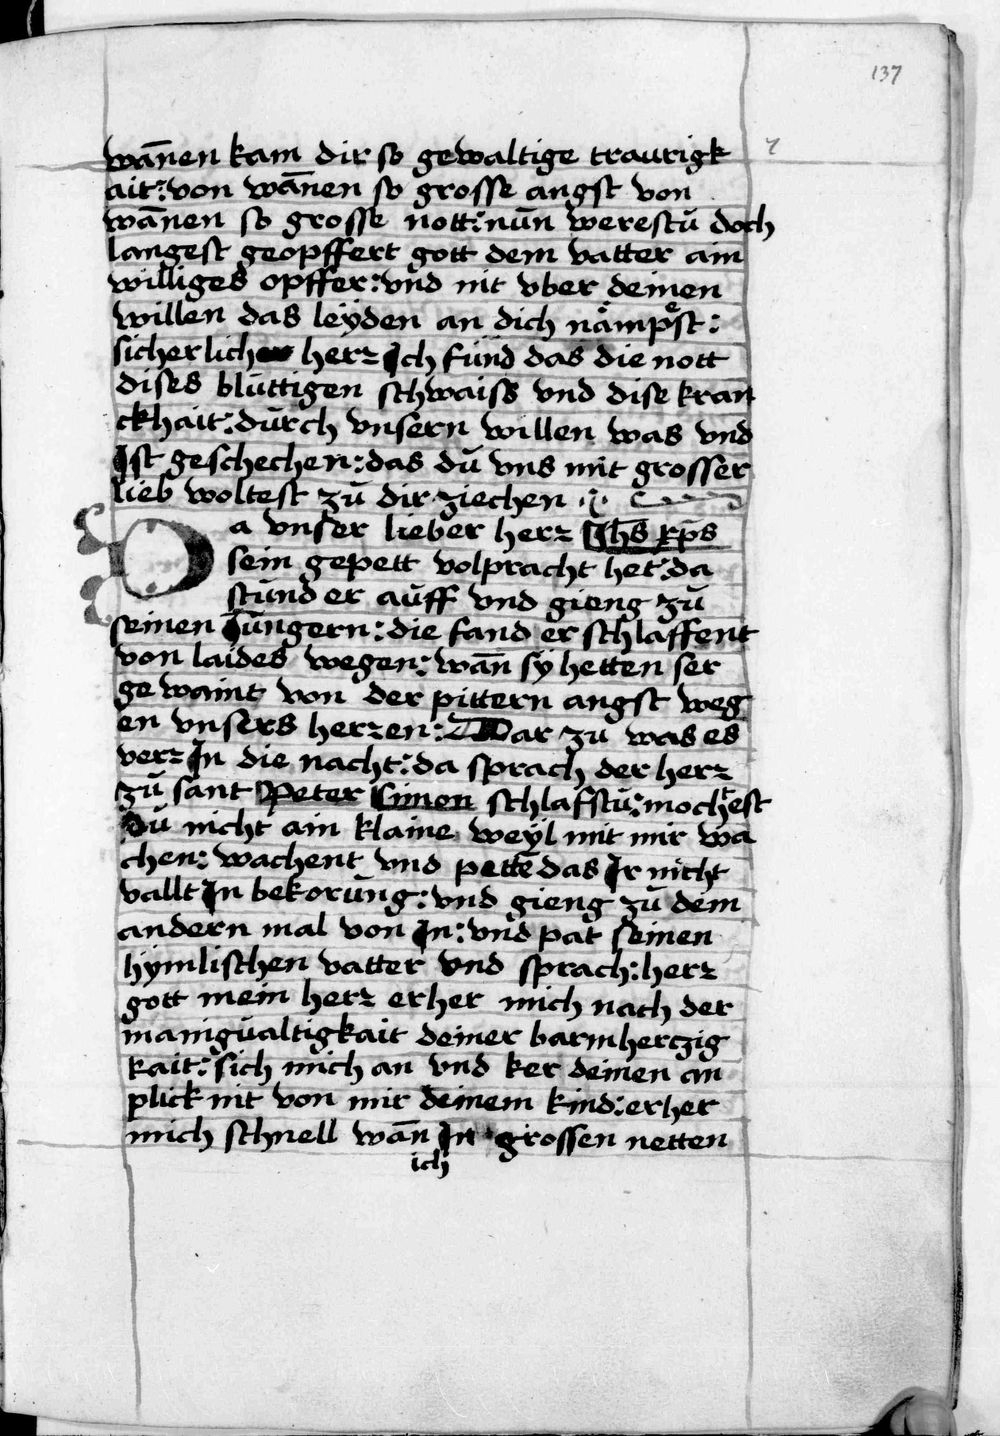 137
wān̄en kam dir so gewaltige traurigk
ait: von wān̄en so grosse angst von
wān̄en so grosse nott: nŭn werestŭ doch
langest geopffert gott dem vatter ain
williges opffer: vnd nit vber deinen
willen das leÿden an dich nåmpͤst:
sicherlich herz Ich fŭnd das die nott
dises blŭttigen schwaiss vnd dise kran
ckhait: dŭrch vnsern willen was vnd
Ist geschechen: das dŭ vns mit grosser
lieb woltest zŭ dir ziechen
Da vnser lieber herz Ihs xp̄s
sein gepett volpracht het: da
stŭnd er aŭff vnd gieng zŭ
seinen Jŭngern: die fand er schlaffent
von laides wegen: wān̄ sÿ hetten ser
gewaint von der pittern angst weg
en vnsers herzen: Dar zŭ was es
verz In die nacht: da sprach der herz
zŭ sant Peter Simon schlafstŭ: mochtest
Dŭ nicht ain klaine weÿl mit mir wa
chen: wachent vnd pettē das Ir nicht
vallt In bekorŭng: vnd gieng zŭ dem
andern mal von In: vnd pat seinen
hÿmlischen vatter vnd sprach: herz
gott mein herz erher mich nach der
manigŭaltigkait deiner barmherczig
kait: sich mich an vnd ker deinen an
plick nit von mir deinem kind: erher
mich schnell wān̄ In grossen netten
ich